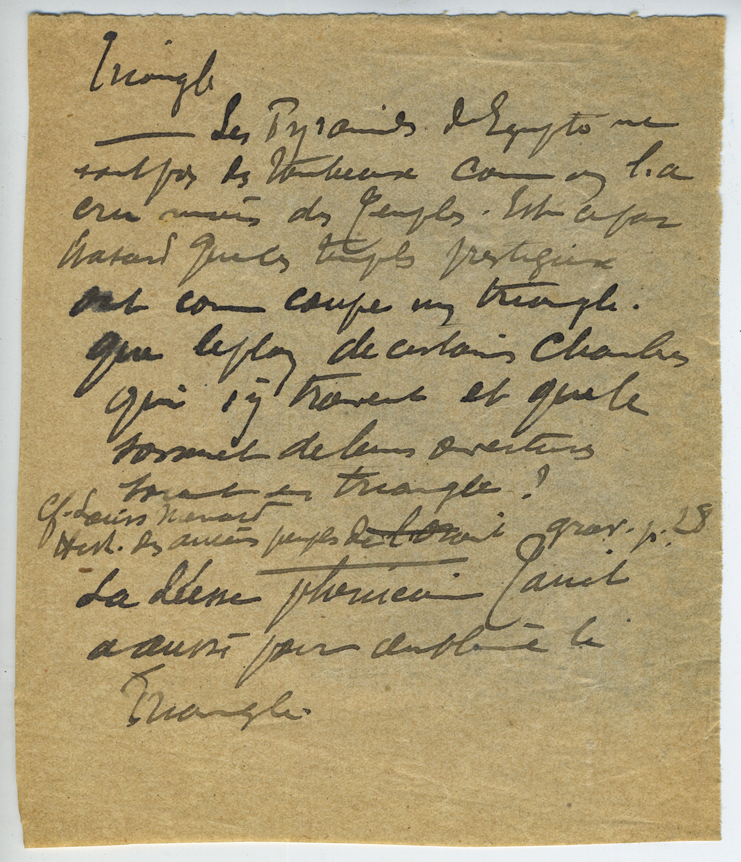 Triangle
Les Pyramides d'Egypte ne
sont pas des tombeaux comme on l'a
cru mais des Temples. Est-ce par
hasard que les temples prestigieux
ont comme coupe un triangle.
que le plan de certaines chambres
qui s'y trouvent et que le
sommet de leurs ouvertures
sont en triangle ?
cf. Louis Menard
Hist. des anciens peuples de l'Orient grav. p. 28
La Déesse phénicienne Tanit
a aussi pour emblème le
Triangle.